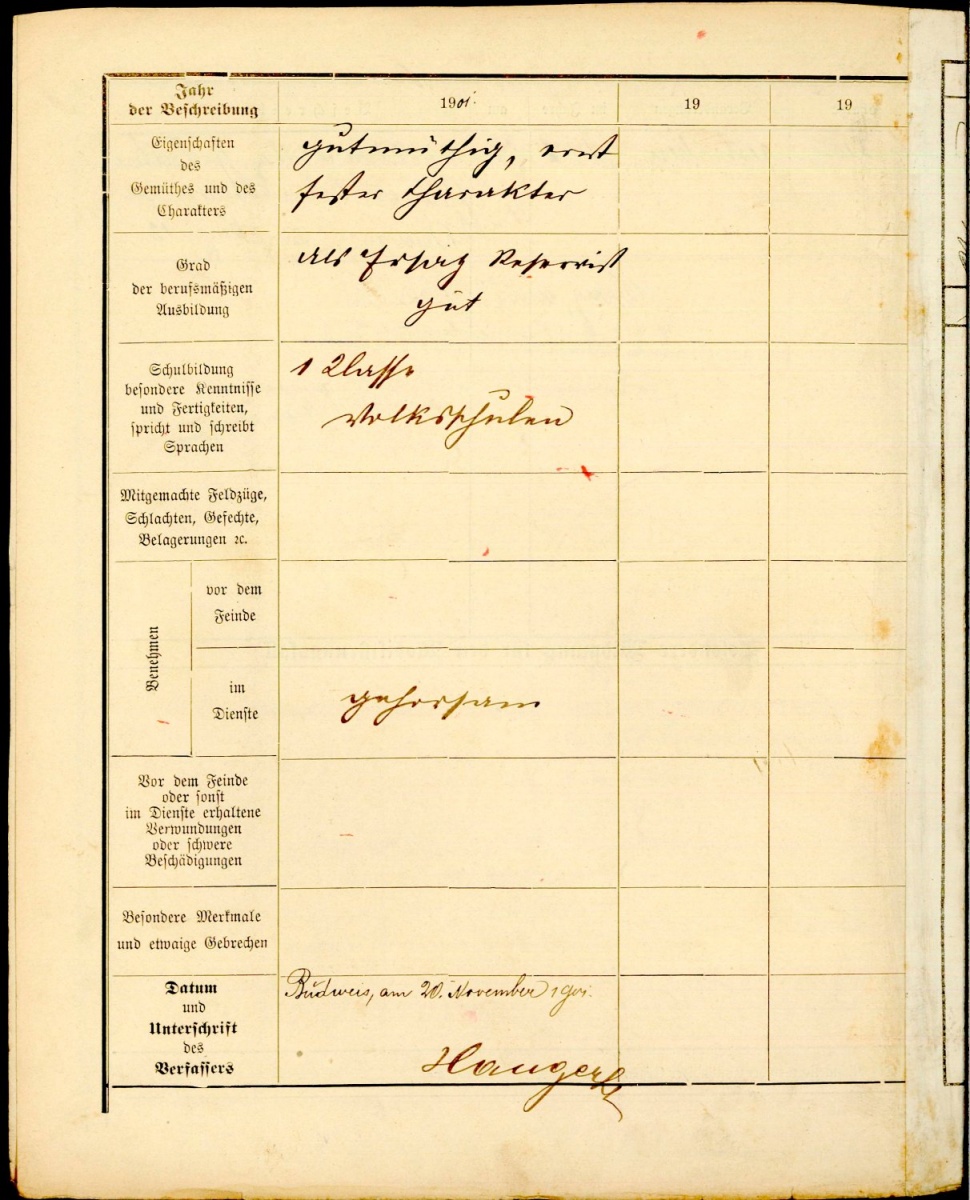 Jahr
der Beschreibung
1901.
19
19
Eigenschaften
des
Gemüthes und des
Charakters
gutmüthig, ernst
fester Charakter
Grad
der berufsmäßigen
Ausbildung
als Ersatz Reservist
gut
Schulbildung
besondere Kenntnisse
und Fertigkeiten,
spricht und schreibt
Sprachen
1 Classe
Volksschulen
Mitgemachte Feldzüge,
Schlachten, Gefechte,
Belagerungen ꝛc.
Benehmen
vor dem
Feinde
im
Dienste
gehorsam
Vor dem Feinde
oder sonst
im Dienste erhaltene
Verwundungen
oder schwere
Beschädigungen
Besondere Merkmale
und etwaige Gebrechen
Datum
und
Unterschrift
des
Verfassers
Budweis, am 20. November 1901.